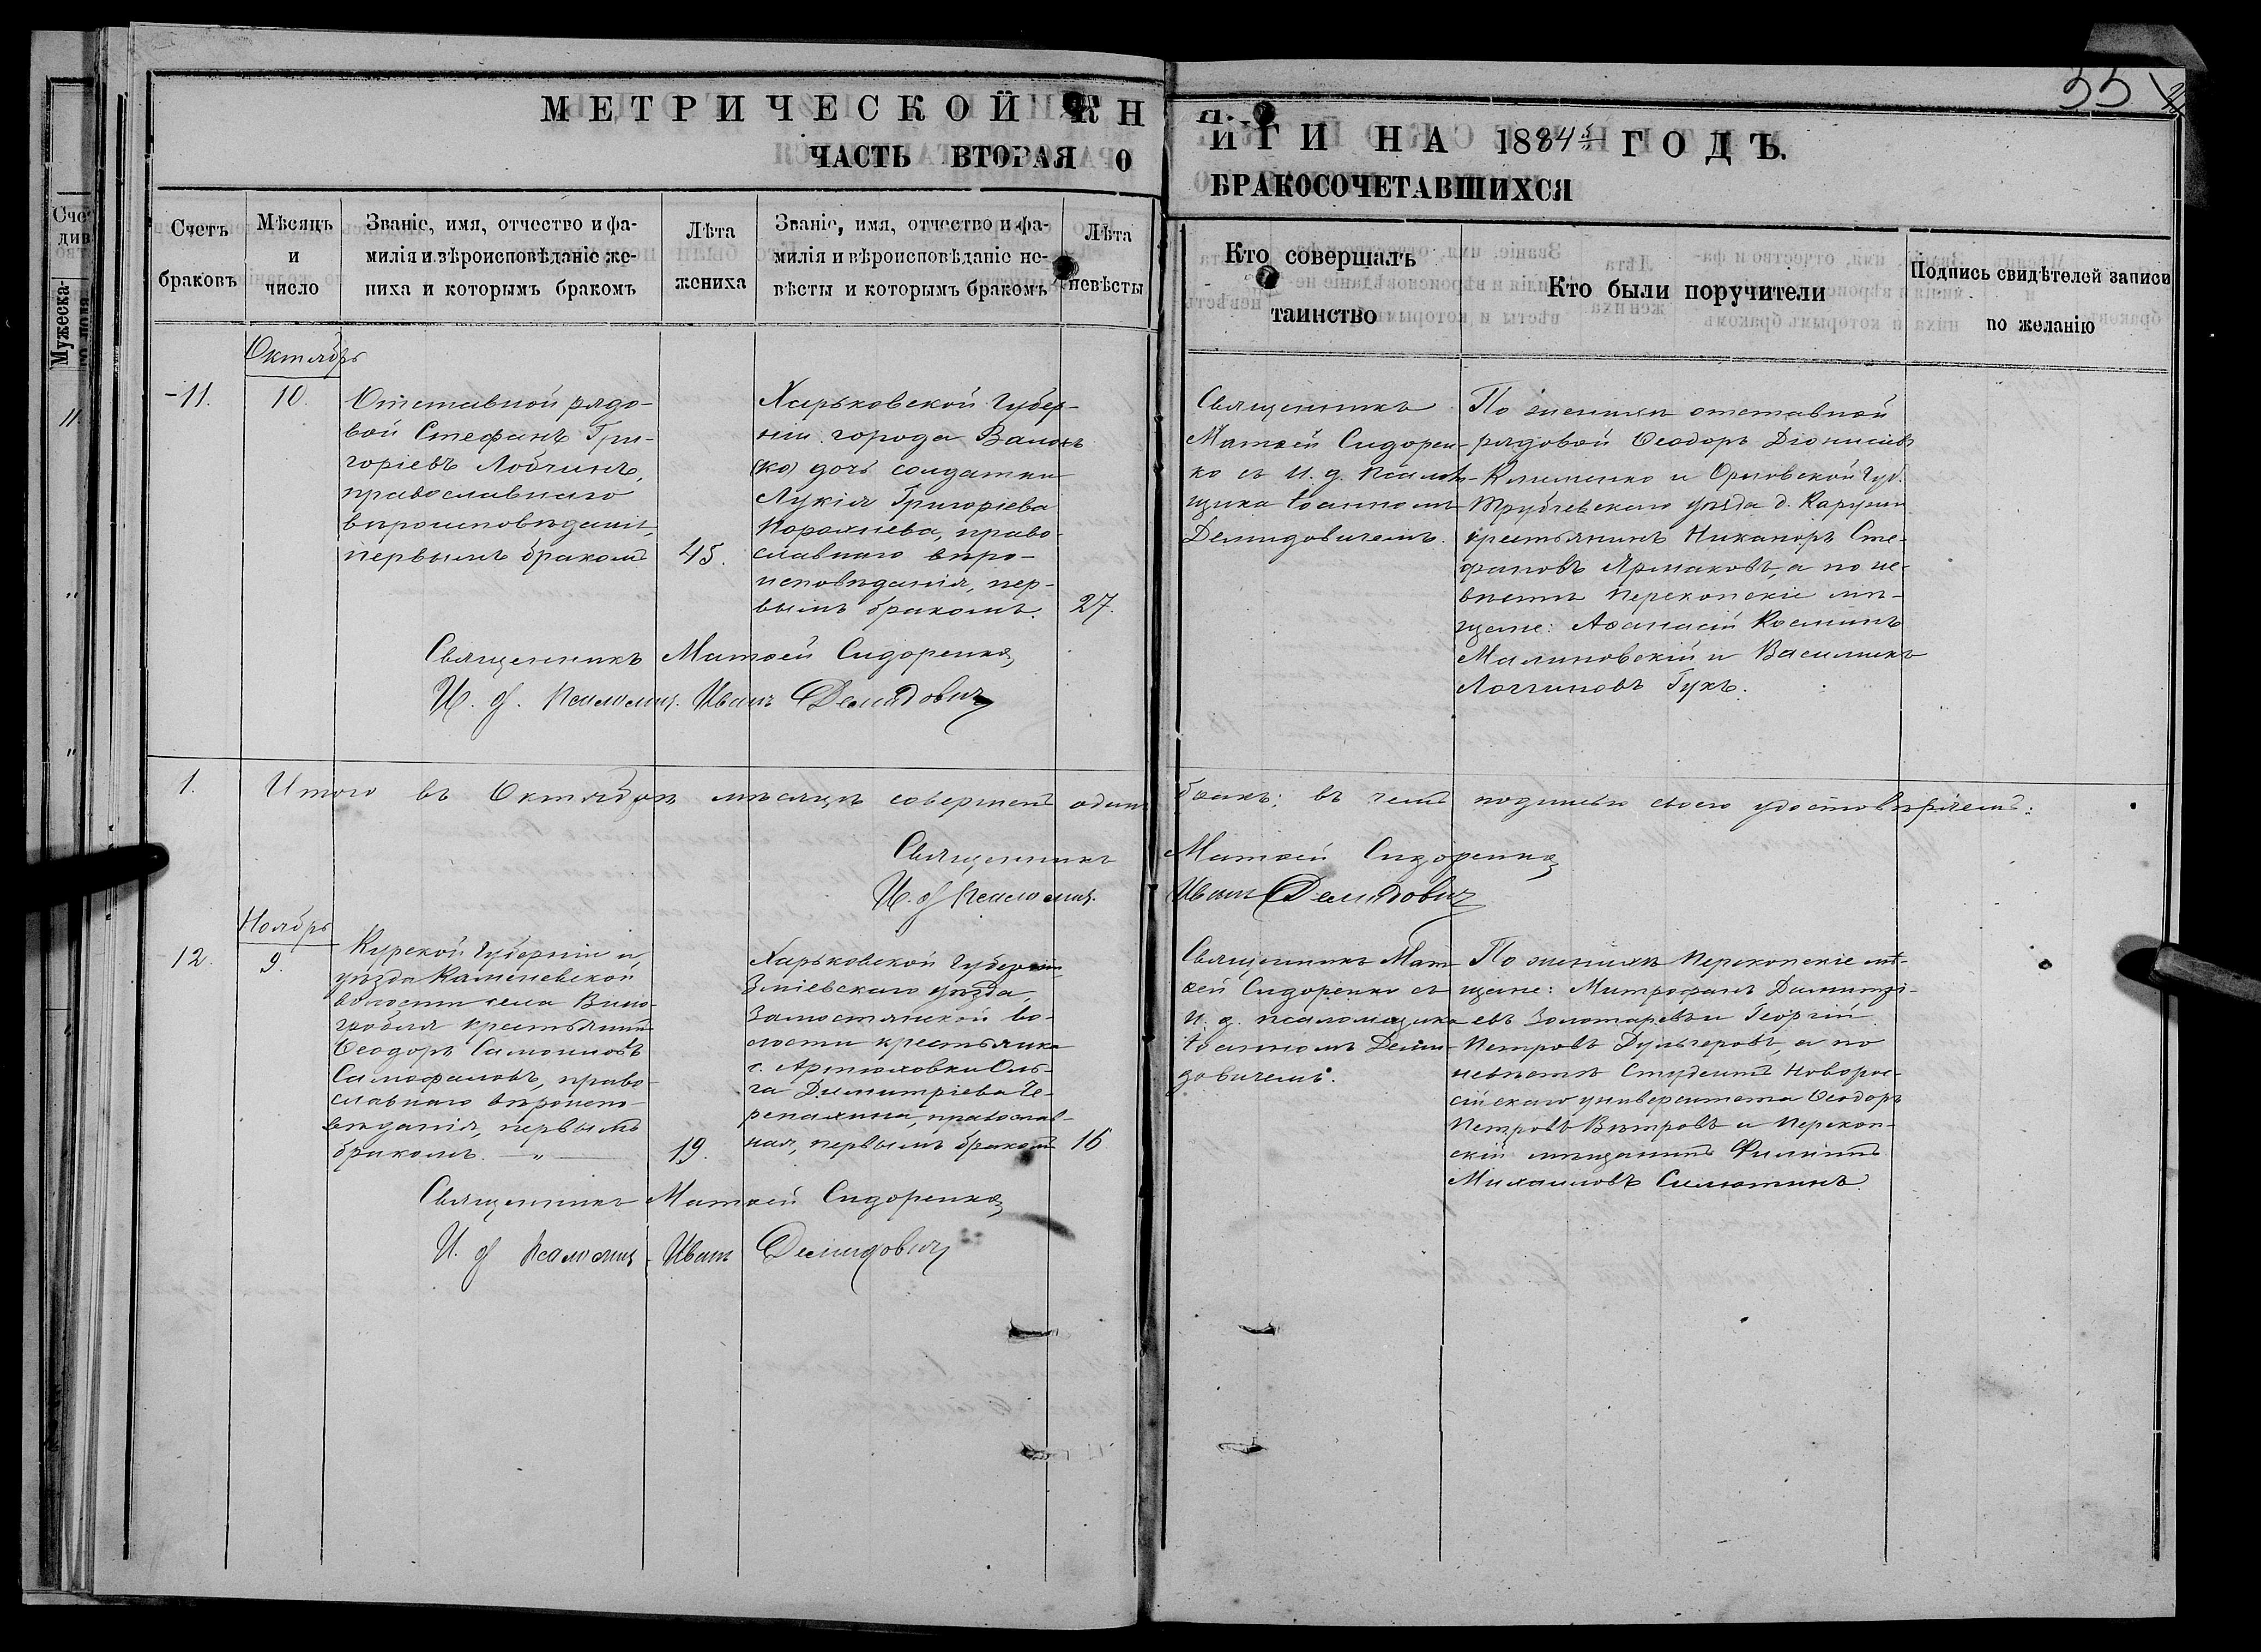 35
МЕТРИЧЕСКОЙ КН
ИГИ НА 1884й ГОДЪ.
ЧАСТЬ ВТОРАЯ О
БРАКОСОЧЕТАВШИХСЯ
Счетъ
браковъ
Мѣсяцъ
и
число
Званіе, имя, отчество и фа-
милія и вѣроисповѣданіе же-
ниха и которымъ бракомъ
Лѣта
жениха
Званіе, имя, отчество и фа-
милія и вѣроисповѣданіе не-
вѣсты и которымъ бракомъ
Лѣта
невѣсты
Кто совершалъ
таинство
Кто были поручители
Подпись свидѣтелей записи
по желанію
Октябрь
11.
10.
Отставной рядо-
вой Стефанъ Гри-
горіевъ Лобчинъ,
православнаго
вѣроисповѣданія,
первымъ бракомъ
45.
Харьковской Губер-
ніи города Валокъ
(ко) дочь солдатки
Лукія Григоріева
право-
славнаго вѣро-
исповѣданія, пер-
вымъ бракомъ.
27.
Священникъ
Матѳей Сидорен-
ко съ И. д. псалом-
щика Іоанномъ
Демидовичемъ.
По женихѣ отставной
рядовой Ѳеодоръ Діонисіевъ
Клименко и Орловской Губ.
Трубчевскаго уѣзда д.
крестьянинъ Никаноръ Сте-
фановъ Ярмаковъ, а по не-
вѣстѣ Перекопскіе мѣ-
щане: Аѳанасій Косминъ
Малиновскій и Василій
Логгиновъ Гукъ.
Священникъ Матѳей Сидоренко
И. д. псаломщ. Иванъ Демидовичъ
1.
Итого въ Октябрѣ мѣсяцѣ совершенъ одинъ бракъ; въ чемъ подписью своею удостовѣряемъ:
Священникъ Матѳей Сидоренко
И. д. псаломщ. Иванъ Демидовичъ
Ноябрь
12.
9.
Курской Губерніи и
уѣзда Каменевской
волости села Вино-
гробля крестьянинъ
Ѳеодоръ Самоиловъ
Самофаловъ, право-
славнаго вѣроиспо-
вѣданія, первымъ
бракомъ. — „ —
19.
Харьковской Губерніи
Зміевскаго уѣзда,
Замостянской во-
лости крестьянка
с. Артюховки Оль-
га Димитріева Че-
репахина, православ-
ная, первымъ бракомъ
16
Священникъ Мат-
ѳей Сидоренко съ
И. д. псаломщика
Іоанномъ Деми-
довичемъ.
По женихѣ Перекопскіе мѣ-
щане: Митрофанъ Димитрі-
евъ Золотаревъ и Георгій
Петровъ Дульгеровъ, а по
невѣстѣ Студентъ Новорос-
сійскаго университета Ѳеодоръ
Петровъ Вѣтровъ и Перекоп-
скій мѣщанинъ Филиппъ
Михаиловъ Силютинъ.
Священникъ Матѳей Сидоренко
И. д. псаломщ. Иванъ Демидовичъ
Мужеска-
го пола
11